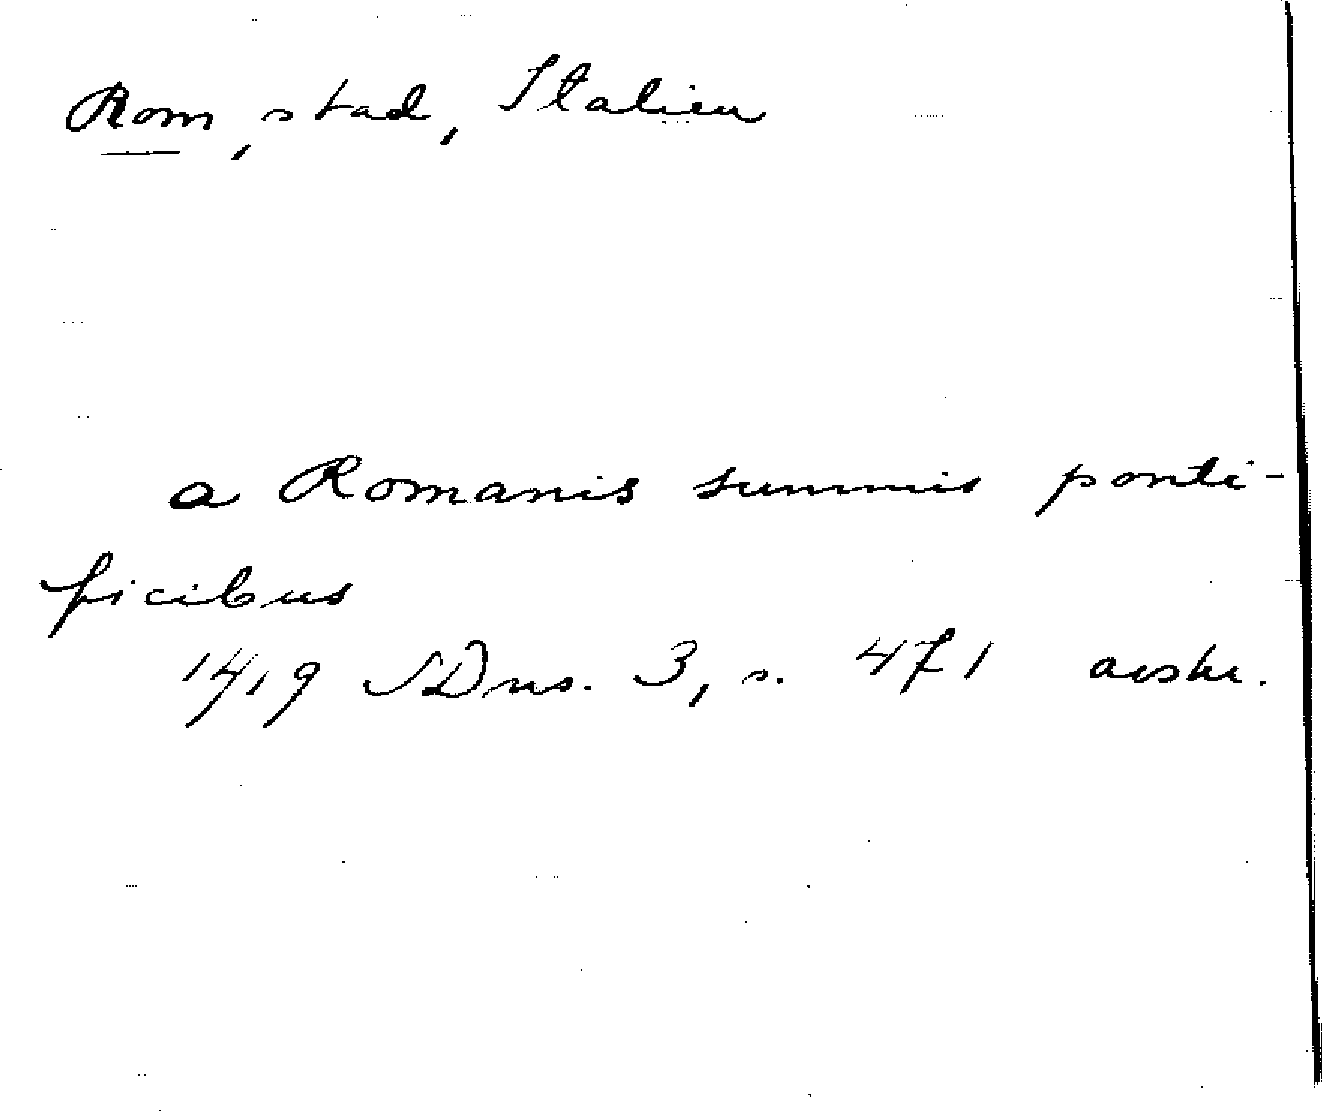 Rom, stad, Italien
a Romanis summis ponti-
ficibus
1419 SDns. 3, s. 471 avskr.